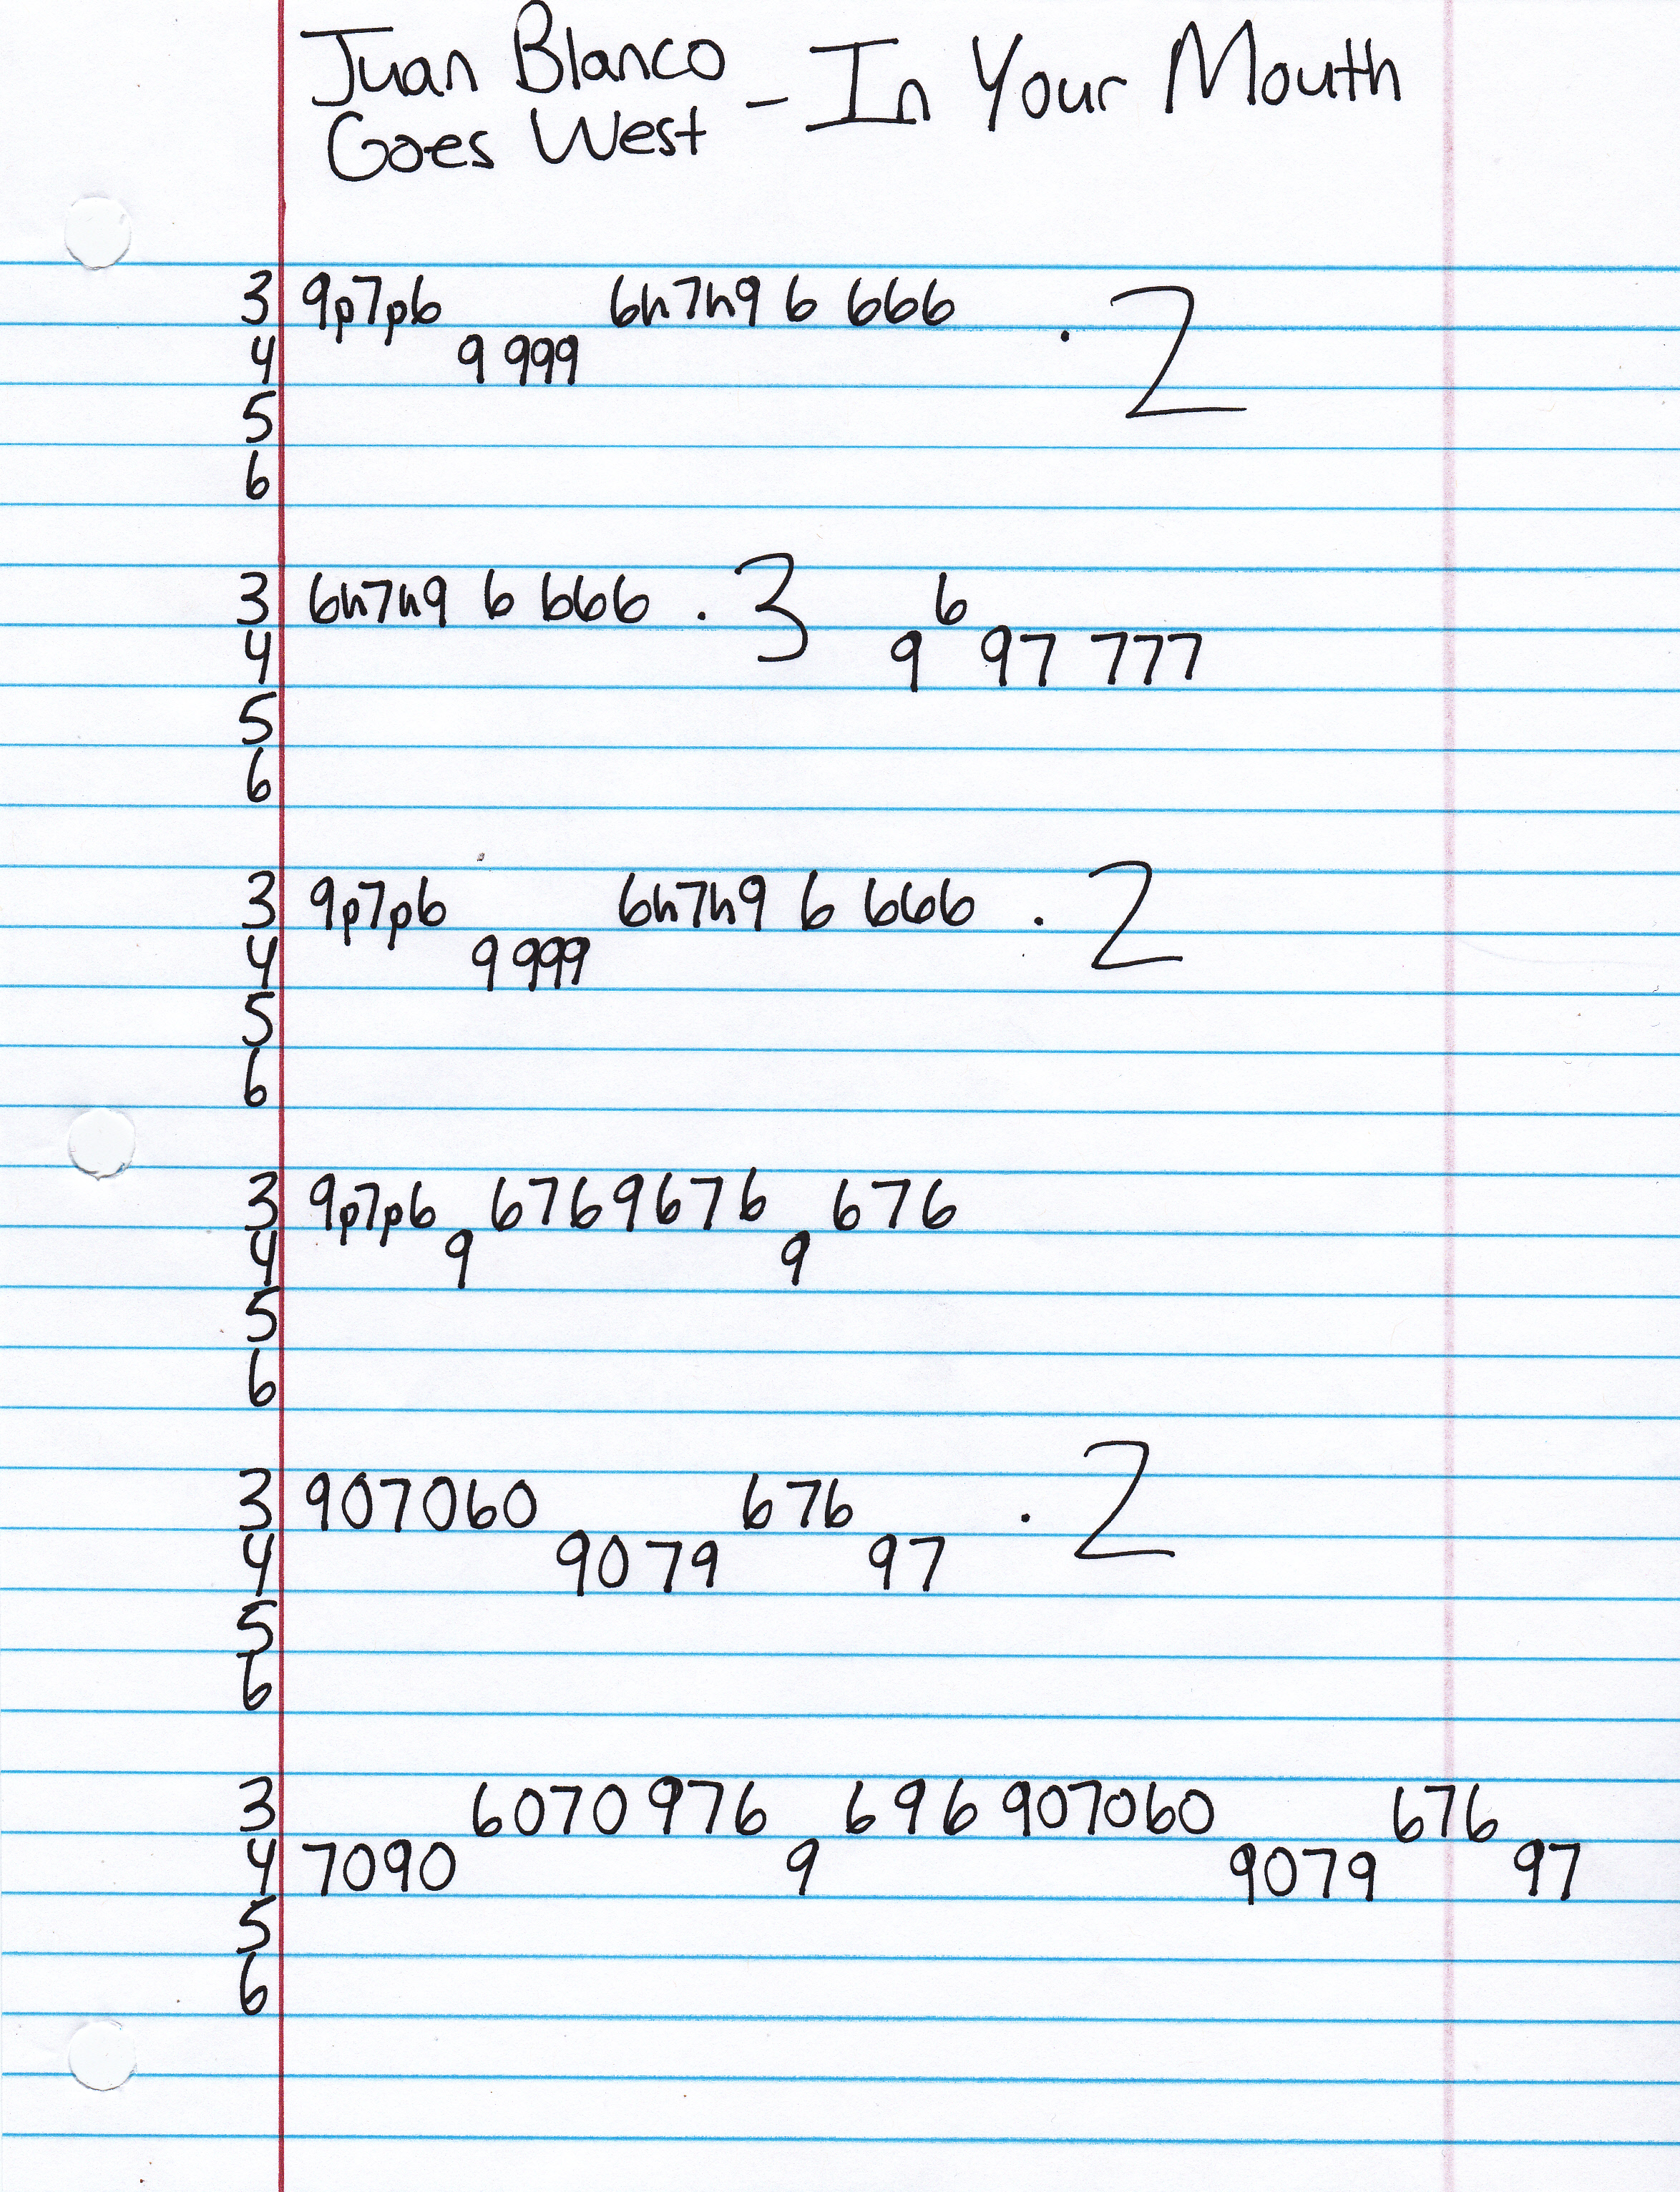 Juan Blanco
Goes West - In Your Mouth
3 9p7p6 6h7h9 6 666 . 2
4 9 999
5
6
3 6h7h9 6 666 . 3 6
4 9 97 777
5
6
3 9p7p6 6h7h9 6 666 . 2
4 9 999
5
6
3 9p7p6 6769676 676
4 9 9
5
6
3 907060 676 . 2
4 9079 97
5
6
3 6070 976 696 907060 676
4 7090 9 9079 97
5
6